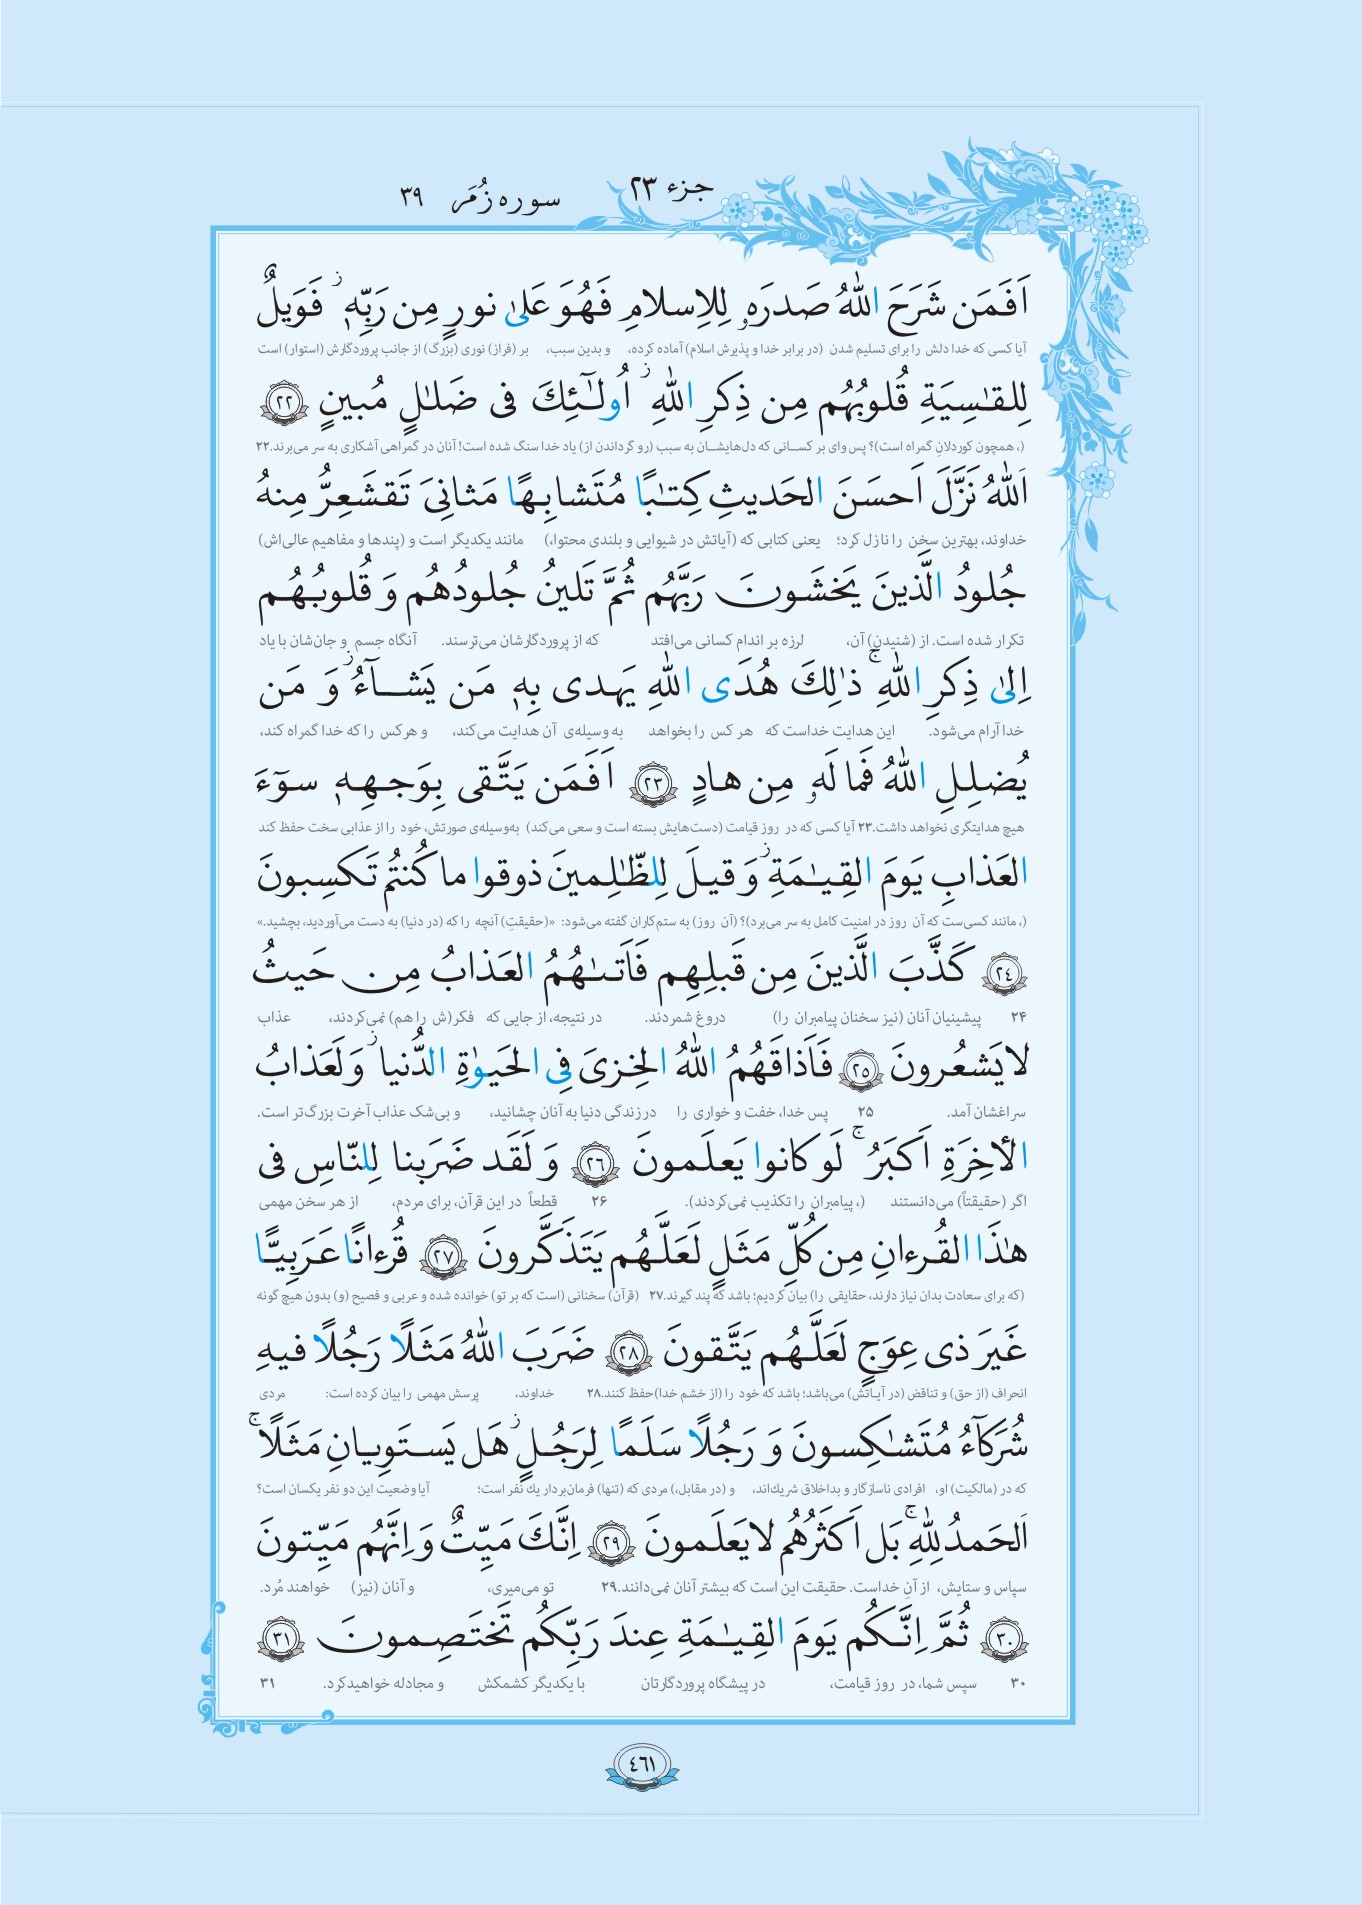 جزء ۲۳
سوره زُمَر ۳۹
اَفَمَن شَرَحَ اللهُ صَدرَهٖ لِلاِسلامِ فَهُوَ عَلىٰ نورٍ مِن رَبِّهٖ ۚ فَوَيلٌ
آیا کسی که خدا دلش را برای تسلیم شدن (در برابر خدا و پذیرش اسلام) آماده کرده، و بدین سبب، بر (فراز) نوری (بزرگ) از جانب پروردگارش (استوار) است
لِلقـٰسِيَةِ قُلوبُهُم مِن ذِكرِ اللهِ ۚ اُولـٰٓئِكَ فى ضَلـٰلٍ مُبينٍ ﴿٢٢﴾
(، همچون کوردلانِ گمراه است)؟ پس وای بر کسانی که دل‌هایشان به سبب (رو گرداندن از) یاد خدا سنگ شده است! آنان در گمراهی آشکاری به سر می‌برند.۲۲
اَللهُ نَزَّلَ اَحسَنَ الحَديثِ كِتـٰبًا مُتَشابِهًا مَثانِىَ تَقشَعِرُّ مِنهُ
خداوند، بهترین سخن را نازل کرد؛ یعنی کتابی که (آیاتش در شیوایی و بلندی محتوا،) مانند یکدیگر است و (پندها و مفاهیم عالی‌اش)
جُلودُ الَّذينَ يَخشَونَ رَبَّهُم ثُمَّ تَلينُ جُلودُهُم وَ قُلوبُهُم
تکرار شده است. از (شنیدن) آن، لرزه بر اندام کسانی می‌افتد که از پروردگارشان می‌ترسند. آنگاه جسم و جان‌شان با یاد
اِلىٰ ذِكرِ اللهِ ۚ ذٰلِكَ هُدَى اللهِ يَهدى بِهٖ مَن يَشـآءُ ۚ وَ مَن
خدا آرام می‌شود. این هدایت خداست که هر کس را بخواهد به وسیله‌ی آن هدایت می‌کند، و هرکس را که خدا گمراه کند،
يُضلِلِ اللهُ فَما لَهٗ مِن هادٍ ﴿٢٣﴾ اَفَمَن يَتَّقى بِوَجهِهٖ سوٓءَ
هیچ هدایتگری نخواهد داشت.۲۳ آیا کسی که در روز قیامت (دست‌هایش بسته است و سعی می‌کند) به‌وسیله‌ی صورتش، خود را از عذابی سخت حفظ کند
العَذابِ يَومَ القِيـٰمَةِ ۚ وَ قيلَ لِلظّـٰلِمينَ ذوقوا ما كُنتُم تَكسِبونَ
(، مانند کسی‌ست که آن روز در امنیت کامل به سر می‌برد)؟ (آن روز) به ستم‌کاران گفته می‌شود: «(حقیقتِ) آنچه را که (در دنیا) به دست می‌آوردید، بچشید.»
﴿٢٤﴾ كَذَّبَ الَّذينَ مِن قَبلِهِم فَاَتىٰهُمُ العَذابُ مِن حَيثُ
۲۴ پیشینیان آنان (نیز سخنان پیامبران را) دروغ شمردند. در نتیجه، از جایی که فکر(ش را هم) نمی‌کردند، عذاب
لا يَشعُرونَ ﴿٢٥﴾ فَاَذاقَهُمُ اللهُ الخِزىَ فِى الحَيوٰةِ الدُّنيا ۚ وَ لَعَذابُ
سراغشان آمد. ۲۵ پس خدا، خفت و خواری را در زندگی دنیا به آنان چشانید، و بی‌شک عذاب آخرت بزرگ‌تر است.
الأخِرَةِ اَكبَرُ ۚ لَو كانوا يَعلَمونَ ﴿٢٦﴾ وَ لَقَد ضَرَبنا لِلنّاسِ فى
اگر (حقیقتاً) می‌دانستند (، پیامبران را تکذیب نمی‌کردند). ۲۶ قطعاً در این قرآن، برای مردم، از هر سخن مهمی
هـٰذَا القُرءانِ مِن كُلِّ مَثَلٍ لَعَلَّهُم يَتَذَكَّرونَ ﴿٢٧﴾ قُرءانًا عَرَبِيًّا
(که برای سعادت بدان نیاز دارند، حقایقی را) بیان کردیم؛ باشد که پند گیرند.۲۷ (قرآن) سخنانی (است که بر تو) خوانده شده و عربی و فصیح (و) بدون هیچ گونه
غَيرَ ذى عِوَجٍ لَعَلَّهُم يَتَّقونَ ﴿٢٨﴾ ضَرَبَ اللهُ مَثَلًا رَجُلًا فيهِ
انحراف (از حق) و تناقض (در آیـاتش) می‌باشد؛ باشد که خود را (از خشم خدا)حفظ کنند.۲۸ خداوند، پرسش مهمی را بیان کرده است: مردی
شُرَكآءُ مُتَشـٰكِسونَ وَ رَجُلًا سَلَمًا لِرَجُلٍ ۚ هَل يَستَوِيانِ مَثَلًا ۚ
که در (مالکیت) او، افرادی ناسازگار و بداخلاق شریک‌اند، و (در مقابل،) مردی که (تنها) فرمان‌بردار یك نفر است؛ آیا وضعیت این دو نفر یکسان است؟
اَلحَمدُ لِلّٰهِ ۚ بَل اَكثَرُهُم لا يَعلَمونَ ﴿٢٩﴾ اِنَّكَ مَيِّتٌ وَ اِنَّهُم مَيِّتونَ
سپاس و ستایش، از آنِ خداست. حقیقت این است که بیشتر آنان نمی‌دانند.۲۹ تو می‌میری، و آنان (نیز) خواهند مُرد.
﴿٣٠﴾ ثُمَّ اِنَّكُم يَومَ القِيـٰمَةِ عِندَ رَبِّكُم تَختَصِمونَ ﴿٣١﴾
۳۰ سپس شما، در روز قیامت، در پیشگاه پروردگارتان با یکدیگر کشمکش و مجادله خواهیدکرد. ۳۱
٤٦١